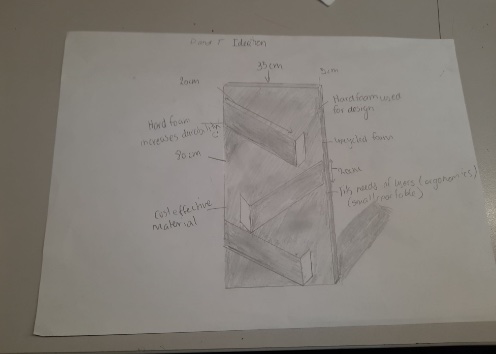 Ideation
35cm
5cm
20cm
Hard foam used
for design
Hard foam
increases durability
recycled foam
90cm
20cm
fits needs of users (ergonomics)
(small, portable)
Cost effective
material